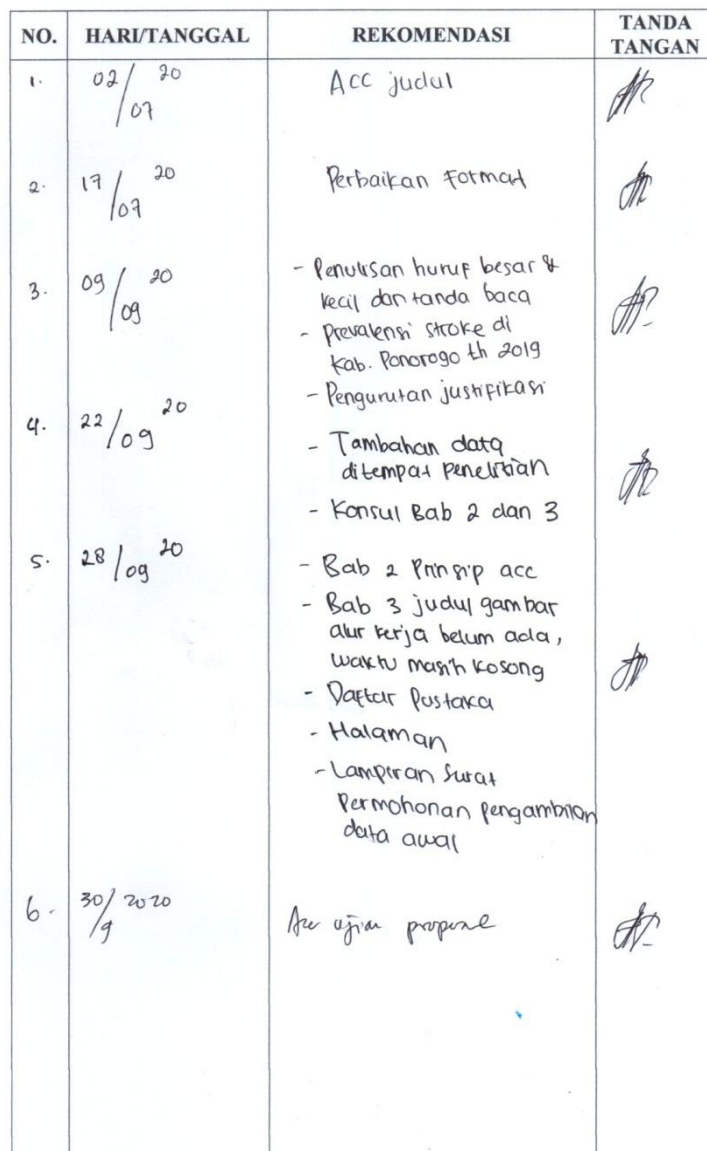 NO. HARI/TANGGAL REKOMENDASI TANDA TANGAN
1. 02/07 20 Acc judul
2. 17/07 20 Perbaikan Format
3. 09/09 20 - Penulisan huruf besar &
kecil dan tanda baca
- prevalensi stroke di
Kab. Ponorogo th 2019
- Pengurutan justifikasi
4. 22/09 20
- Tambahan data
ditempat penelitian
- Konsul Bab 2 dan 3
5. 28/09 20 - Bab 2 Prinsip acc
- Bab 3 judul gambar
alur kerja belum ada,
waktu masih kosong
- Daftar Pustaka
- Halaman
- Lampiran Surat
Permohonan pengambilan
data awal
6. 30/9 2020 Acc ujian proposal